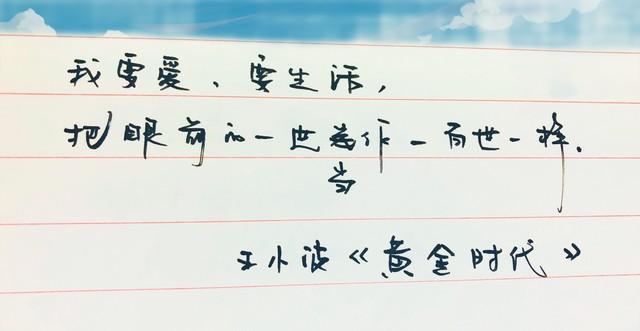 我要爱、要生活,
把眼前的一世当作一百世一样.
王小波《黄金时代》